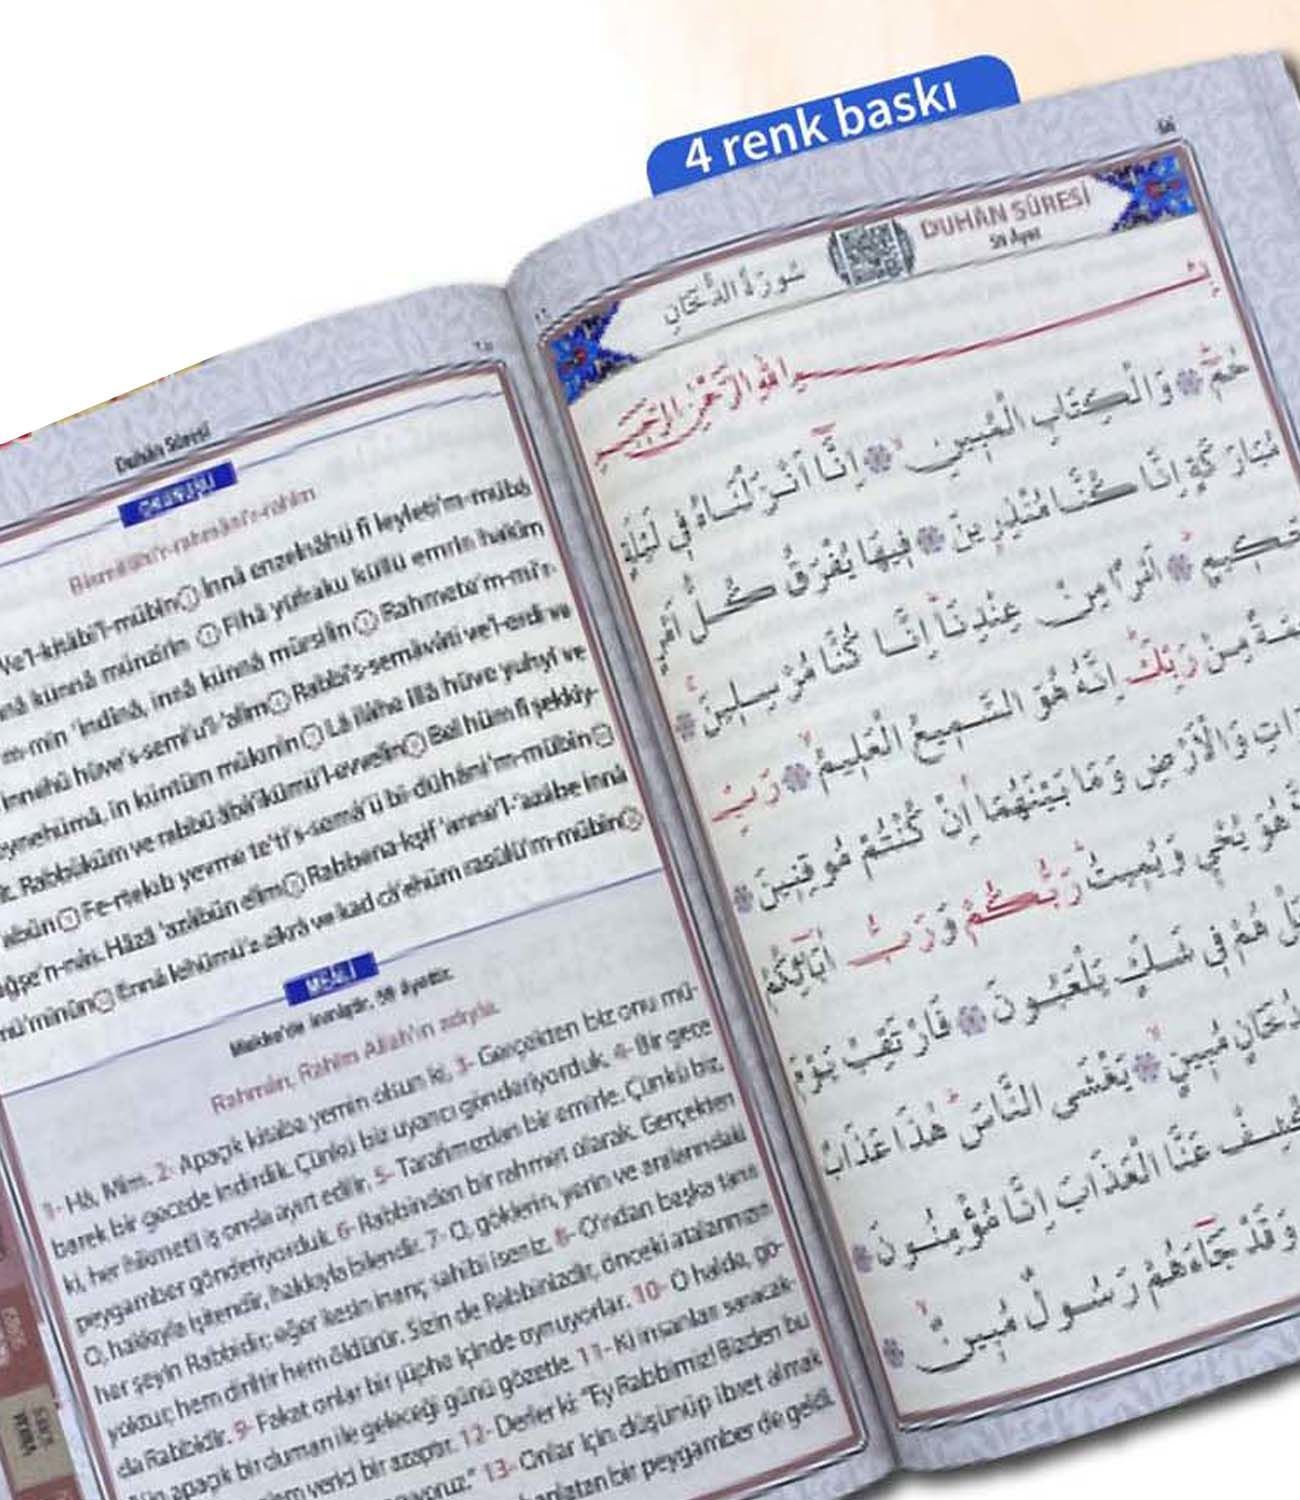 4 renk baskı
Duhân Sûresi
OKUNUŞU
Bismillâhi'r-rahmâni'r-rahîm
Ve'l-kitâbi'l-mübîn İnnâ enzelnâhü fî leyleti'm-mübâ
künnâ münzirîn Fîhâ yüfraku küllü emrin hakîm
m-min 'indinâ, innâ künnâ mürsilîn Rahmete'm-mi'r-
innehû hüve's-semî'u'l-'alîm Rabbi's-semâvâti ve'l-erdi ve
beynehümâ, in küntüm mûkınîn Lâ ilâhe illâ hüve yuhyî ve
Rabbüküm ve rabbü âbâikümü'l-evvelîn Bel hüm fî şekkiy-
Fe-rtekıb yevme te'ti's-semâ'ü bi-dühâni'm-mübîn
Hâzâ 'azâbün elîm Rabbena-kşif 'anne'l-'azâbe innâ
mü'minûn Ennâ lehümü'z-zikrâ ve kad câ'ehüm rasûlü'm-mübîn
MEALİ
Mekke'de inmiştir. 59 Âyettir.
Rahmân, Rahîm Allah'ın adıyla.
1- Hâ, Mîm. 2- Apaçık kitaba yemin olsun ki, 3- Gerçekten biz onu mü-
barek bir gecede indirdik. Çünkü biz uyarıcı gönderiyorduk. 4- Bir gece
ki, her hikmetli iş onda ayırt edilir. 5- Tarafımızdan bir emirle. Çünkü biz,
peygamber gönderiyorduk. 6- Rabbinden bir rahmet olarak. Gerçekten
O, hakkıyla işitendir, hakkıyla bilendir. 7- O, göklerin, yerin ve aralarındaki
her şeyin Rabbidir; eğer kesin inanç sahibi iseniz. 8- O'ndan başka tanrı
yoktur; hem diriltir hem öldürür. Sizin de Rabbinizdir, önceki atalarınızın
da Rabbidir. 9- Fakat onlar bir şüphe içinde oynuyorlar. 10- O halde, gö-
ğün apaçık bir duman ile geleceği günü gözetle. 11- Ki insanları saracak-
elem verici bir azaptır. 12- Derler ki: "Ey Rabbimiz! Bizden bu
13- Onlar için düşünüp ibret almak
anlatan bir peygamber de geldi.
DUHÂN SÛRESİ
59 Âyet
سُورَةُ الدُّخَانِ
بِسْمِ اللهِ الرَّحْمٰنِ الرَّحِيمِ
حٰمٓ وَالْكِتَابِ الْمُبِينِ اِنَّٓا اَنْزَلْنَاهُ فِي لَيْلَةٍ
مُبَارَكَةٍ اِنَّا كُنَّا مُنْذِرِينَ فِيهَا يُفْرَقُ كُلُّ اَمْرٍ
حَكِيمٍ اَمْرًا مِنْ عِنْدِنَا اِنَّا كُنَّا مُرْسِلِينَ
مِنْ رَبِّكَ اِنَّهُ هُوَ السَّمِيعُ الْعَلِيمُ رَبِّ
وَالْاَرْضِ وَمَا بَيْنَهُمَا اِنْ كُنْتُمْ مُوقِنِينَ
هُوَ يُحْيِي وَيُمِيتُ رَبُّكُمْ وَرَبُّ اٰبَٓائِكُمُ
هُمْ فِي شَكٍّ يَلْعَبُونَ فَارْتَقِبْ يَوْمَ
مُبِينٍ يَغْشَى النَّاسَ هٰذَا عَذَابٌ
عَنَّا الْعَذَابَ اِنَّا مُؤْمِنُونَ
وَقَدْ جَٓاءَهُمْ رَسُولٌ مُبِينٌ